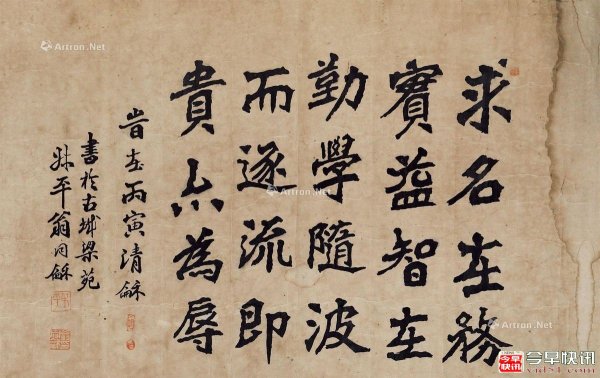 求名在務
實益智在
勤學隨波
而逐流即
貴亦為辱
旹在丙寅清龢
書於古城梁苑
叔平翁同龢
Artron.Net
Artron.Net
Artron.Net
Artron.Net
Artron.Net
今早快讯